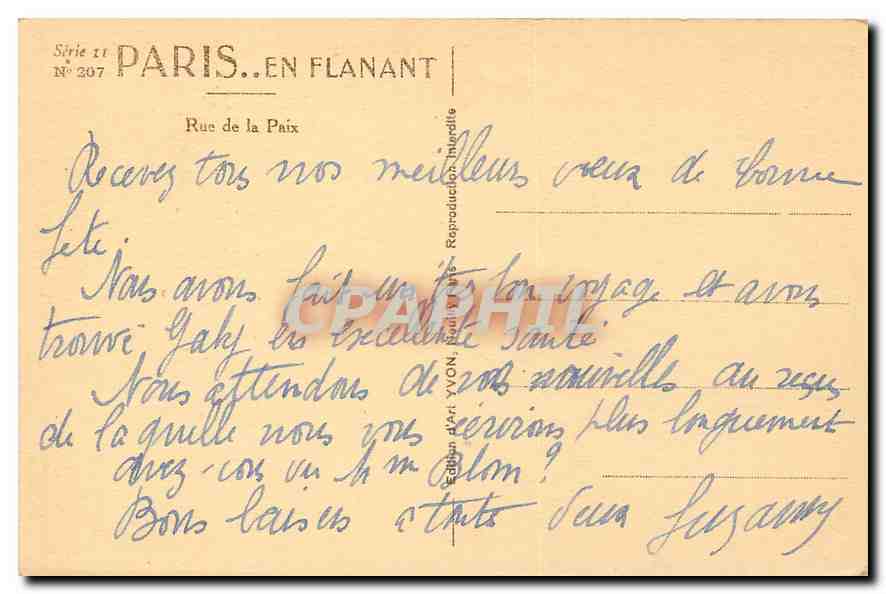 Série 11
N° 207
PARIS..EN FLANANT
Rue de la Paix
Recevez tous nos meilleurs vœux de bonne
fête.
Nous avons fait un très bon voyage et avons
trouvé Gaby en excellente santé
Nous attendons de vos nouvelles au reçus
de laquelle nous vous écrirons plus longuement
avez-vous vu Mme Blom?
Bons baisers a toute deux Suzanne
Edition d'Art YVON, Neuilly Paris - Reproduction interdite
CPAPHIL